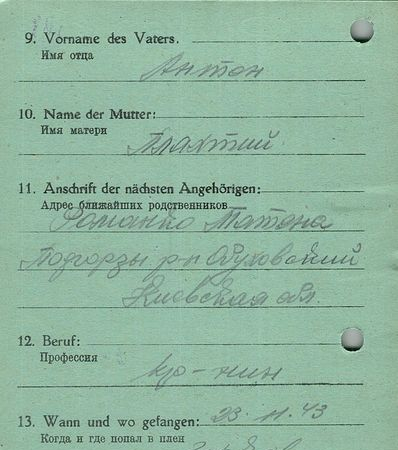 9. Vorname des Vaters.
Имя отца
Антон
10. Name der Mutter:
Имя матери
Плахтий
11. Anschrift der nächsten Angehörigen:
Адрес ближайших родственников
Романко Татяна
Подгорзы р-н Обуховский
Киевская обл.
12. Beruf:
Профессия
кр-нин
13. Wann und wo gefangen: 23.11.43
Когда и где попал в плен